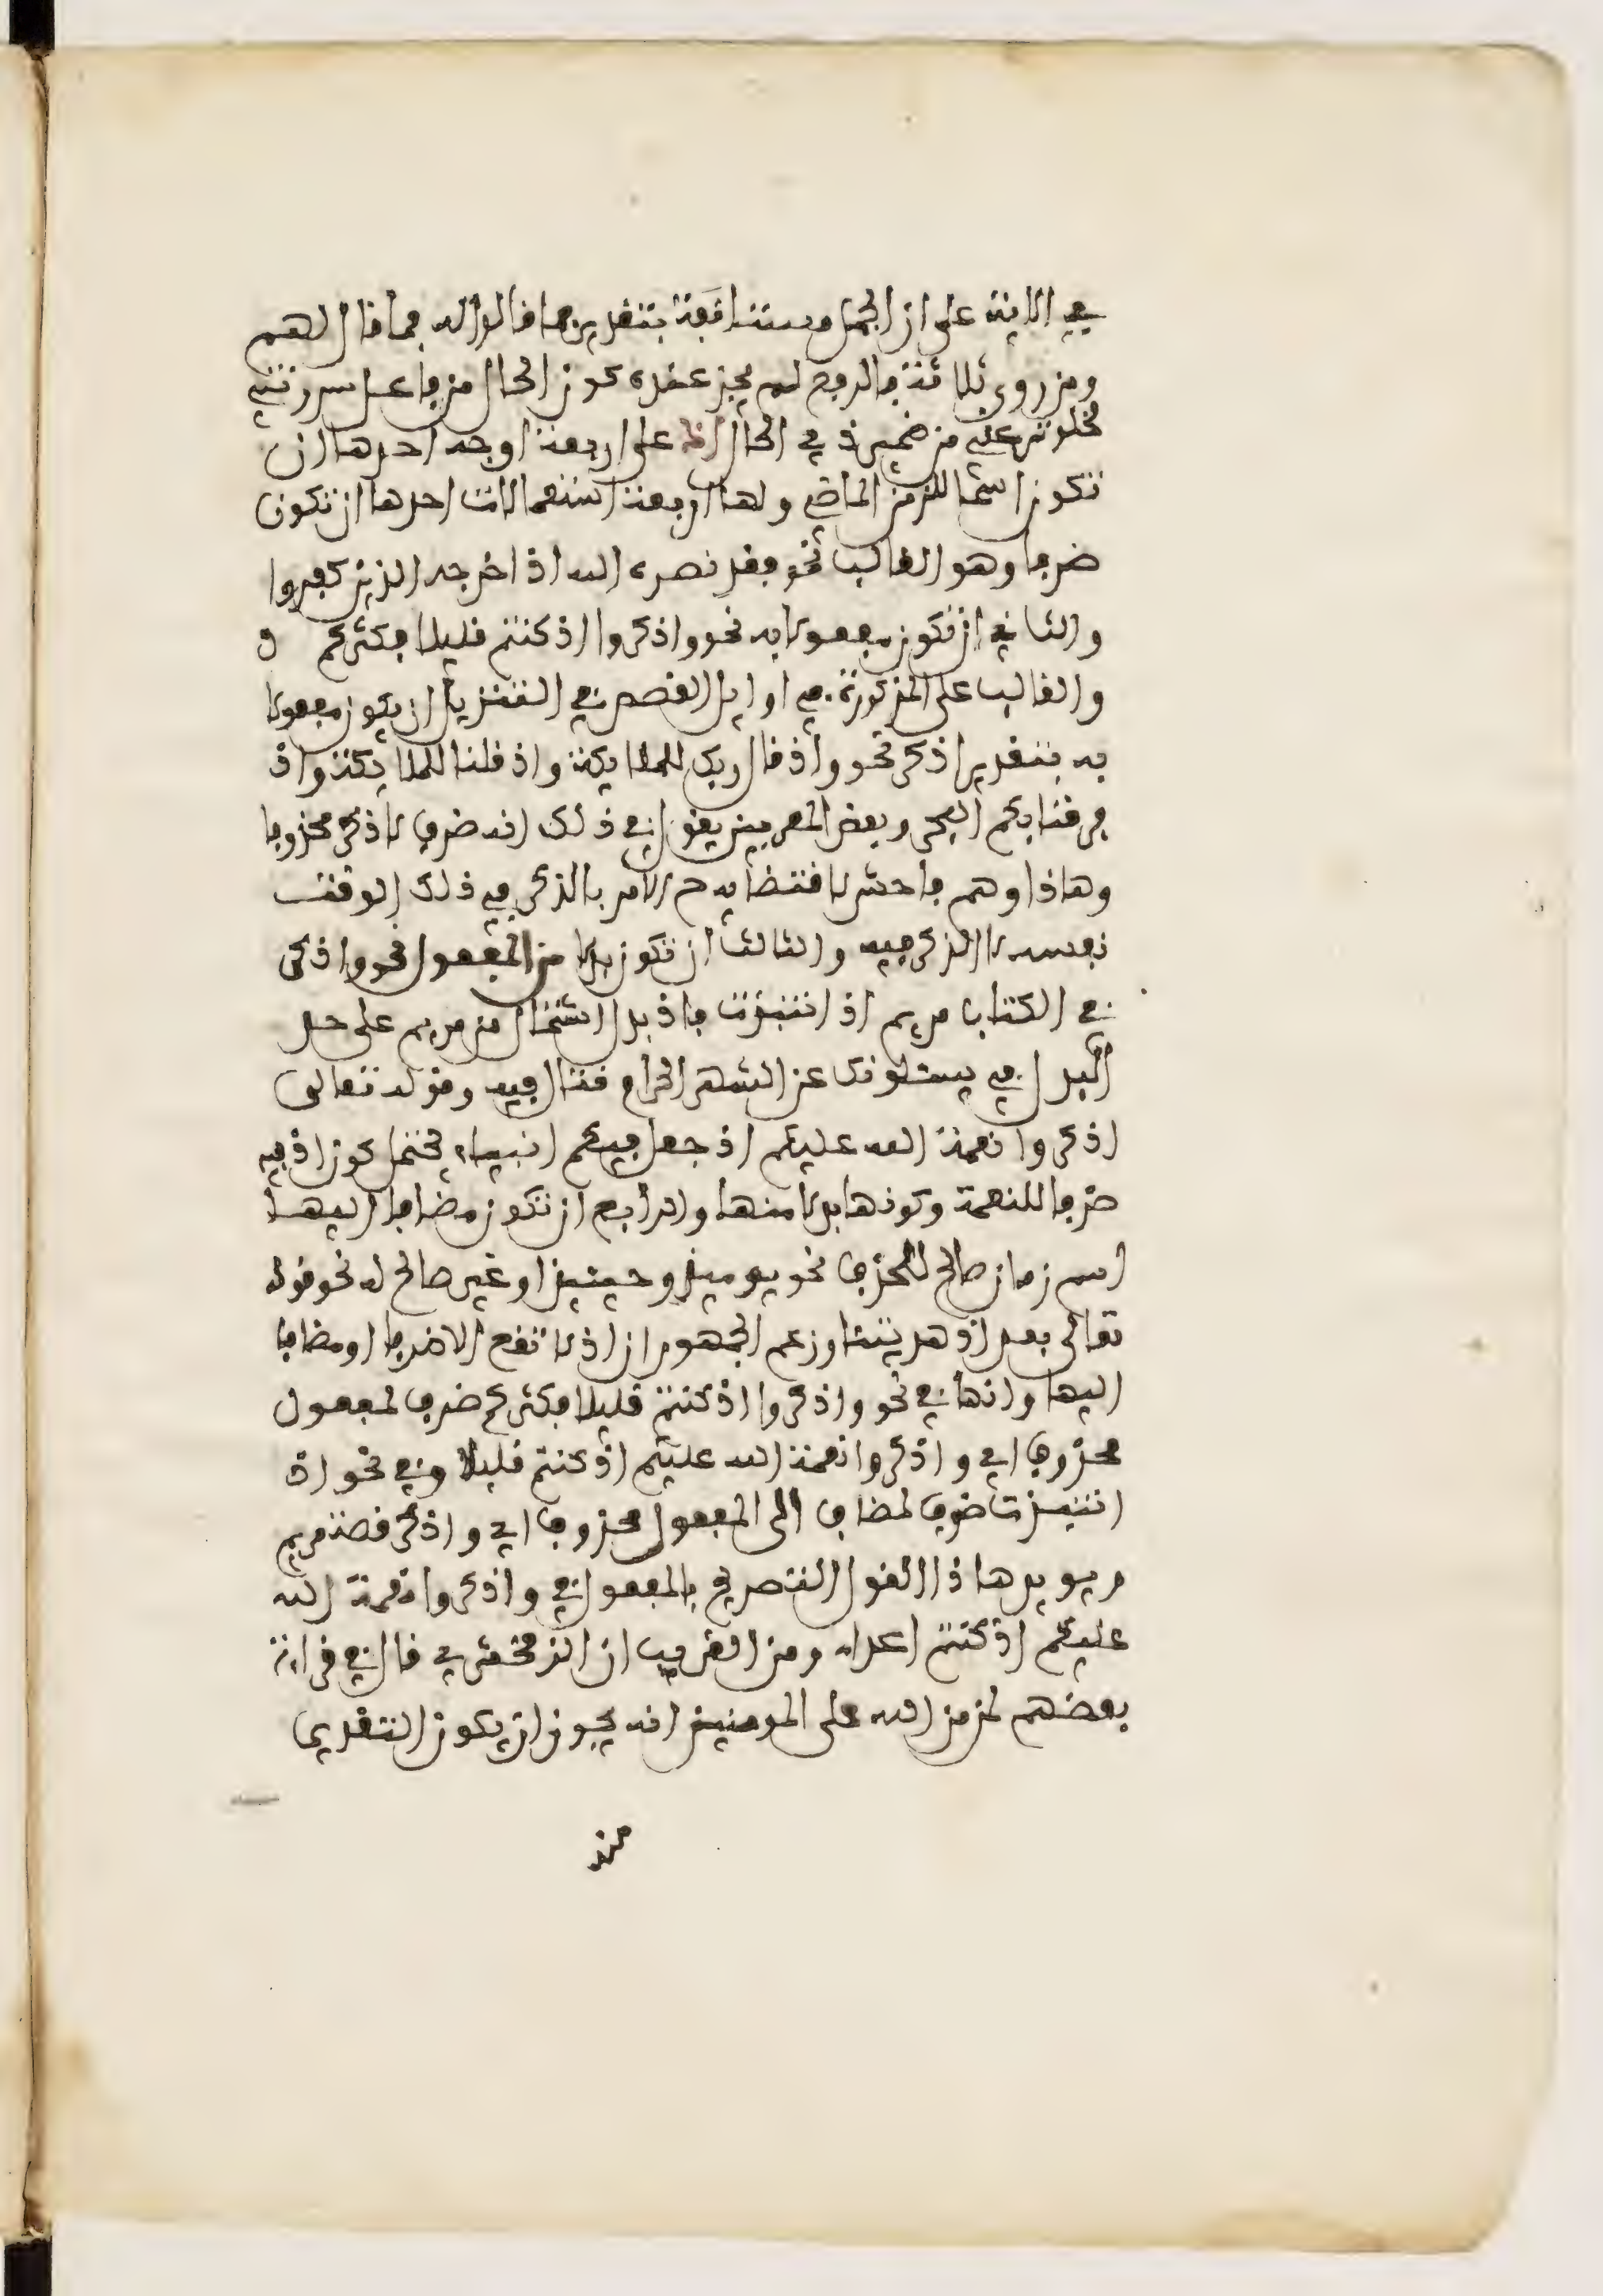 في الاية على ان الجمل مستانفة بتقدير فما قالوا له فما قال لهم
ومن روى ثلاثة بالرفع لم يجز عنده كون الحال من فاعل سررتني
لخلو ترعى من ضمير ذي الحال اذ على اربعة اوجه احدها ان
تكون اسما للزمن الماضي ولها اربعة استعمالات احدها ان تكون
ضرفا وهو الغالب نحو فقد نصره الله اذ اخرجه الذين كفروا
والثاني ان تكون مفعولا به نحو واذكروا اذ كنتم قليلا فكثركم و
والغالب على المذكورة في اوايل القصص في التنزيل ان يكون مفعولا
به بتقدير اذكر نحو واذ قال ربك للملايكة واذ قلنا للملايكة واذ
فرقنا بكم البحر وبعض المعربين يقول في ذلك انه ضرف لاذكر محذوفا
وهاذا وهم فاحش لاقتضايه ح الامر بالذكر في ذلك الوقت
نفسه لا الذكر فيه والثالث ان تكون بدلا من المفعول نحو واذكر
في الكتاب مريم اذ انتبذت فاذ بدل اشتمال من مريم على حد
البدل في يسئلونك عن الشهر الحرام قتال فيه وقوله تعالى
اذكروا نعمة الله عليكم اذ جعل فيكم انبياء يحتمل كون اذ فيه
ضرفا للنعمة وكونها بدلا منها والرابع ان تكون مضافا اليها
اسم زمان صالح للحذف نحو يوميذ وحينيذ او غير صالح له نحو قوله
تعالى بعد اذ هديتنا وزعم الجمهور ان اذ لا تقع الا ضرفا او مضافا
اليها وانها في نحو واذكروا اذ كنتم قليلا فكثركم ضرف لمفعول
محذوف اي واذكروا نعمة الله عليكم اذ كنتم قليلا وفي نحو اذ
انتبذت ضرف لمضاف الى المفعول محذوف اي واذكر قصة مريم
ويويد هاذا القول التصريح بالمفعول في واذكروا نعمة الله
عليكم اذ كنتم اعداء ومن الغريب ان الزمخشري قال في قراءة
بعضهم لمن من الله على المومنين انه يجوز ان يكون التقدير
منه